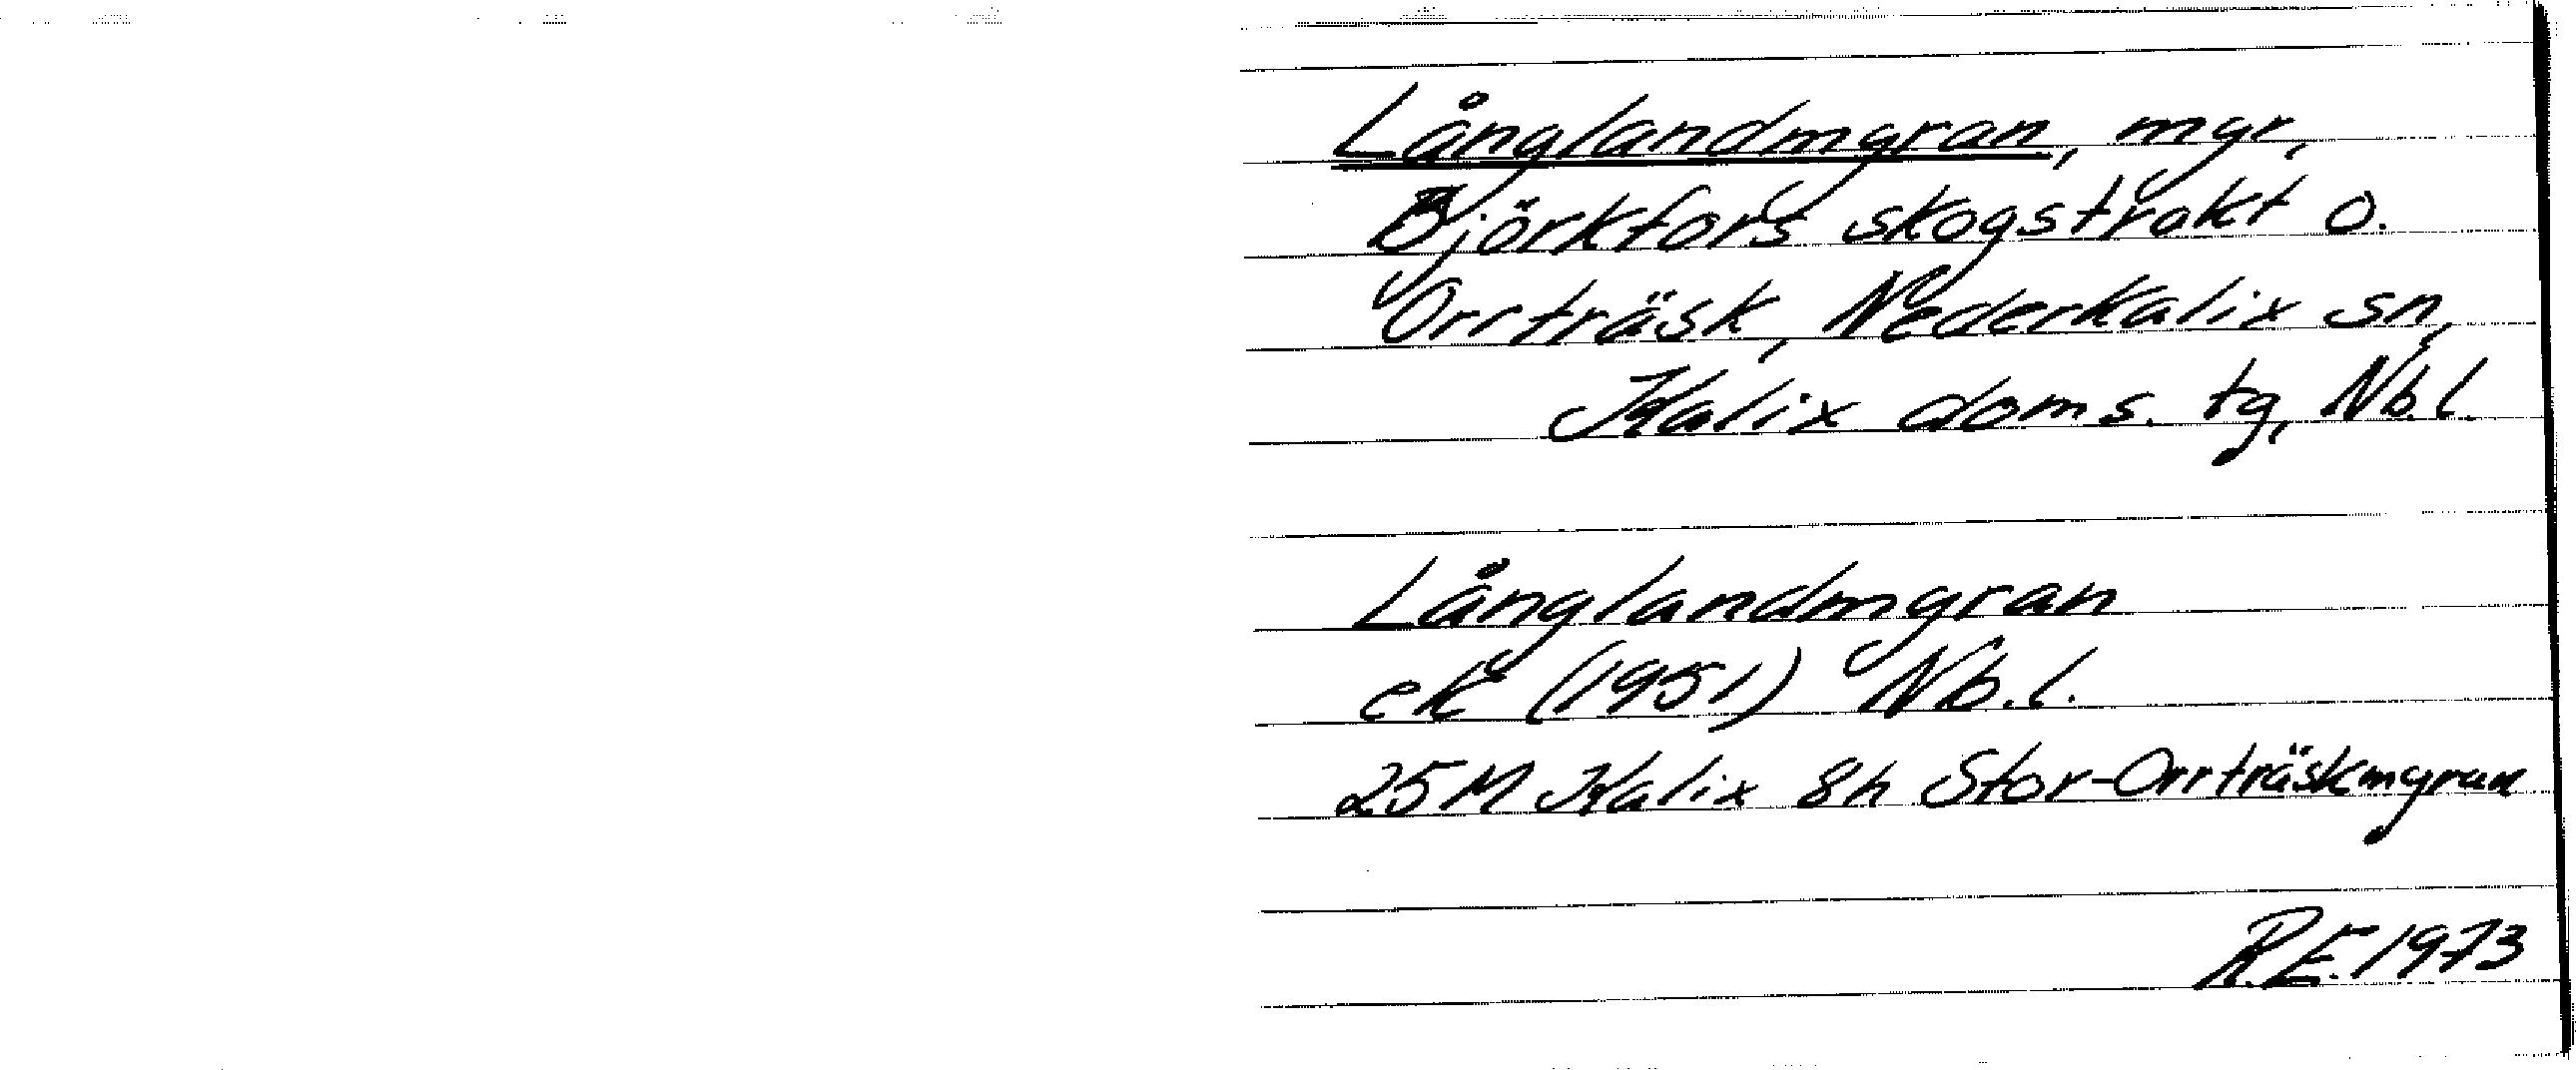 Långlandmyran, myr,
Björkfors skogstrakt o.
Orrträsk, Nederkalix sn,
Kalix doms. tg, Nb.l.
Långlandmyran
ek (1951) Nb.l.
25 M Kalix 8h Stor-Orrträskmyran
R.E. 1973